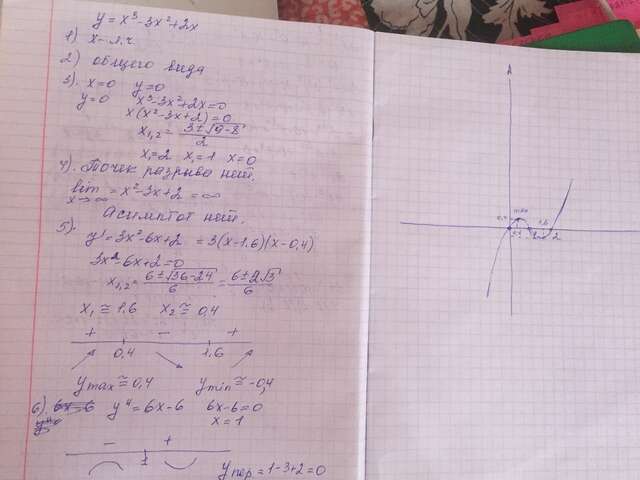 y = x³-3x²+2x
1) x - л.ч.
2) общего вида
3). x=0 y=0
y=0 x³-3x²+2x=0
x(x²-3x+2)=0
x₁,₂ = (3±√(9-8))/2
x₁=2 x₁=1 x=0
4). Точек разрыва нет.
lim x→∞ = x²-3x+2 = ∞
Асимптот нет.
5). y' = 3x²-6x+2 = 3(x-1,6)(x-0,4)
3x²-6x+2=0
x₁,₂ = (6±√(36-24))/6 = (6±2√3)/6
x₁ ≅ 1,6 x₂ ≅ 0,4
+ - +
0,4 1,6
ymax ≅ 0,4 ymin ≅ -0,4
6). y'' = 6x-6 6x-6=0
x=1
- +
1
yпер = 1-3+2=0
0,4
1,6
2